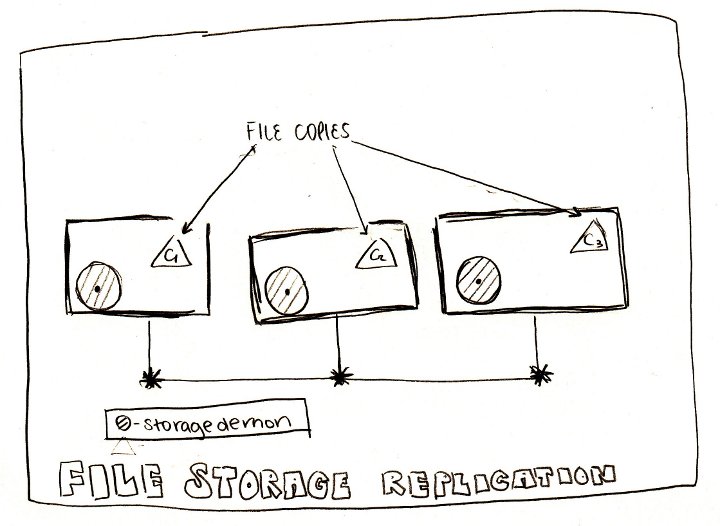 FILE COPIES
C1 C2 C3
-storagedemon
FILE STORAGE REPLICATION